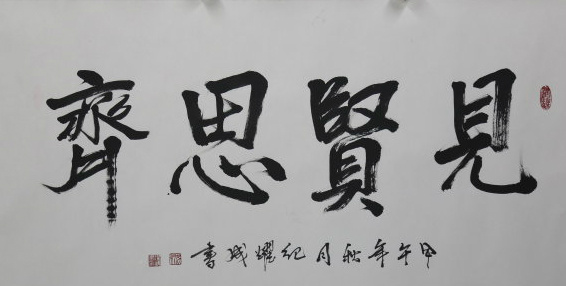 見賢思齊
甲午年秋月紀耀城書